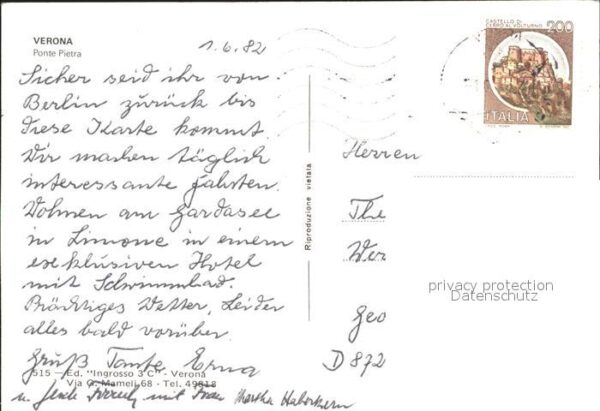 VERONA
Ponte Pietra
1.6.82
Sicher seid ihr von
Berlin zurück bis
diese Karte kommt.
Wir machen täglich
interessante Fahrten.
Wohnen am Gardasee
in Limone in einem
exklusiven Hotel
mit Schwimmbad.
Prächtiges Wetter, Leider
alles bald vorüber.
Gruß Tante Erna
515 — Ed. "Ingrosso 3 C" - Verona
Via G. Mameli 68 - Tel. 49818
u. mit Frau Martha
Riproduzione vietata
CASTELLO DI
CERRO AL VOLTURNO
200
ITALIA
Herren
The
Wer
Geo
D 872
privacy protection
Datenschutz